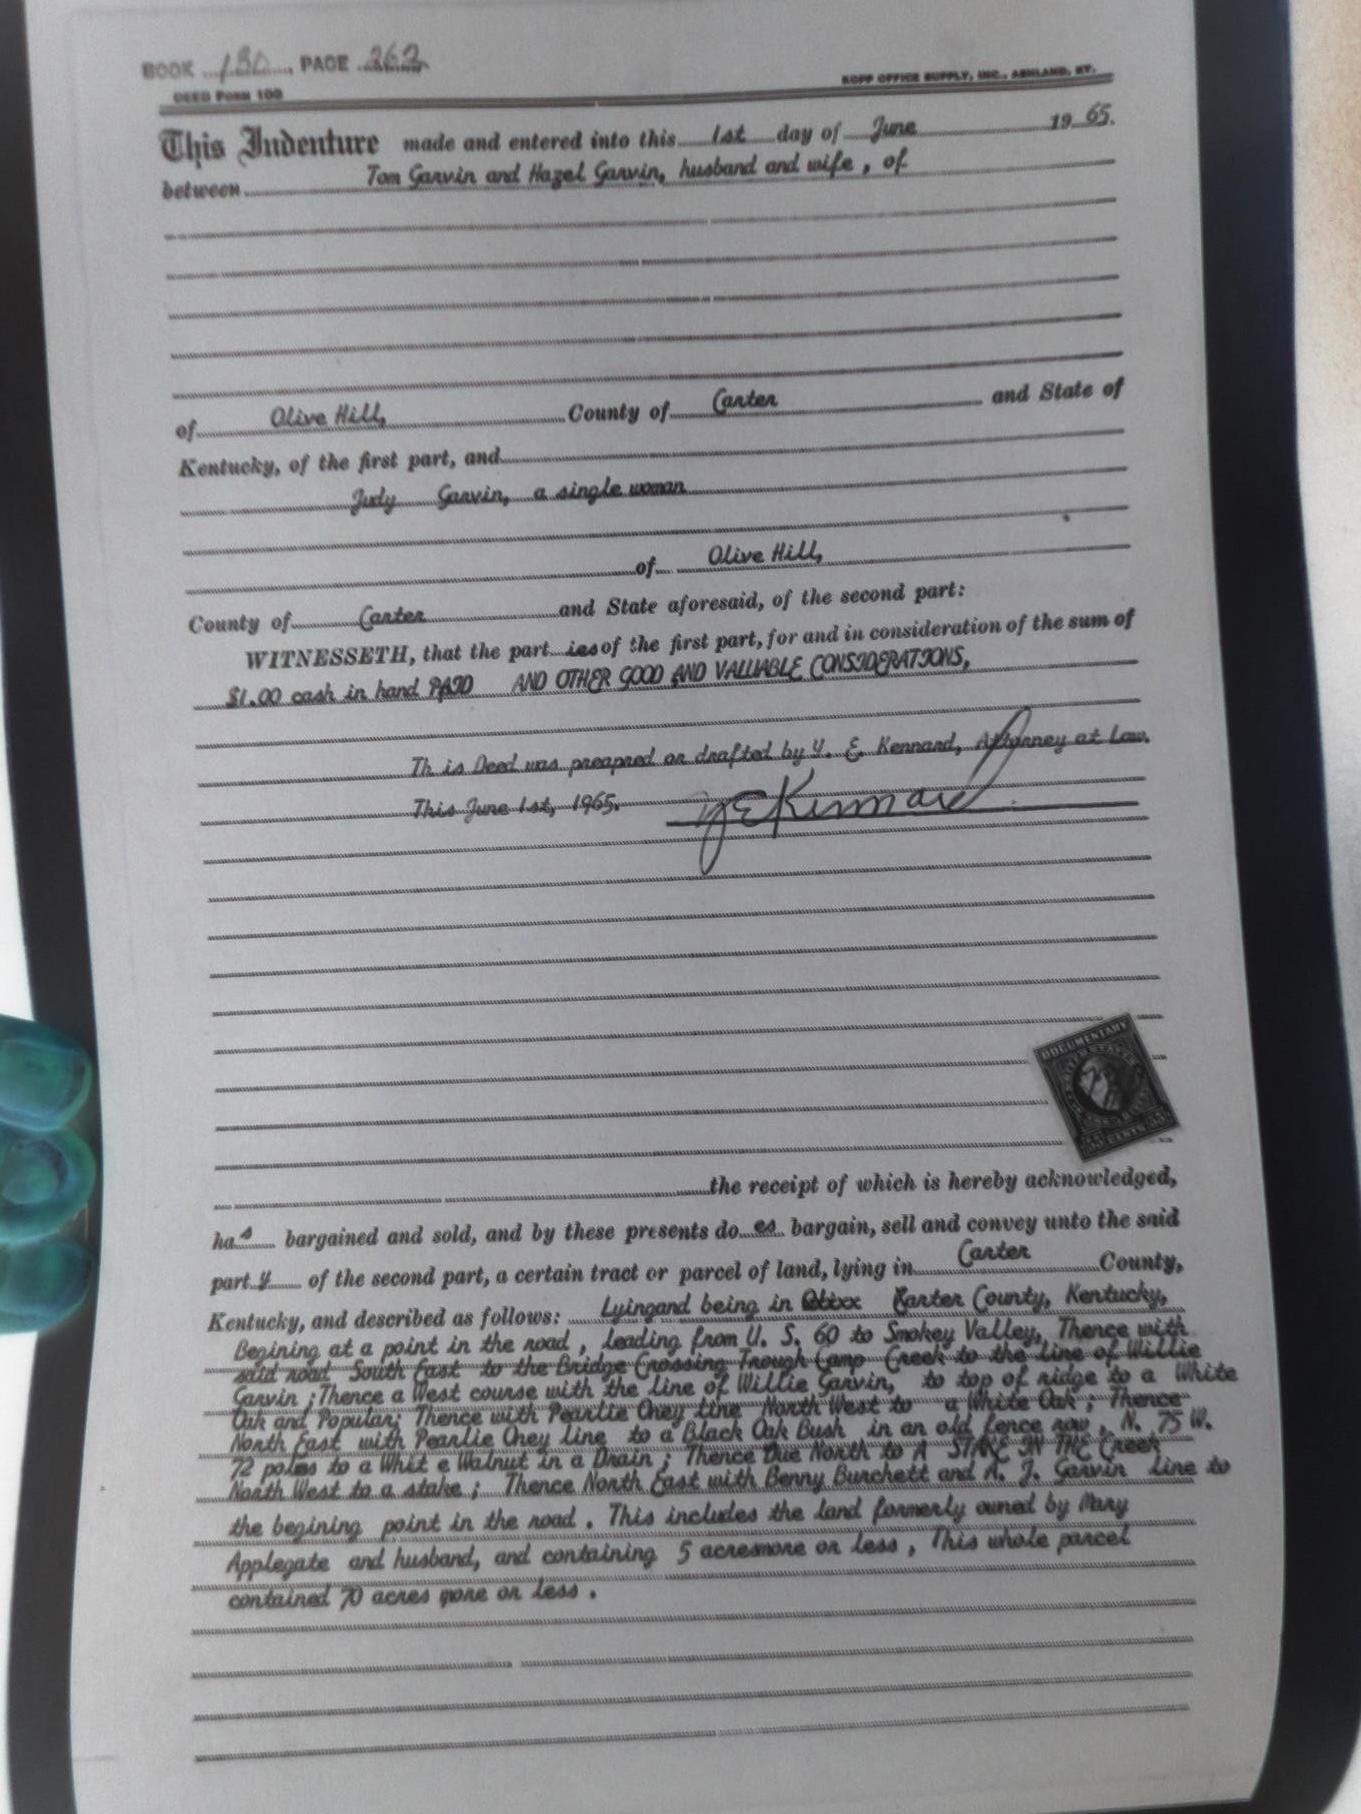 BOOK 130, PAGE 262
DEED FORM 100
KOPP OFFICE SUPPLY, INC., ASHLAND, KY.
This Indenture made and entered into this 1st day of June 19 65.
between Tom Garvin and Hazel Garvin, husband and wife , of
of Olive Hill, County of Carter and State of
Kentucky, of the first part, and
Judy Garvin, a single woman
of Olive Hill,
County of Carter and State aforesaid, of the second part:
WITNESSETH, that the part ies of the first part, for and in consideration of the sum of
$1.00 cash in hand PAID AND OTHER GOOD AND VALUABLE CONSIDERATIONS,
Th is Deed was preapred or drafted by Y. E. Kennard, Attorney at Law.
This June 1st, 1965. Y E Kennard
DOCUMENTARY
the receipt of which is hereby acknowledged,
ha s bargained and sold, and by these presents do es bargain, sell and convey unto the said
part y of the second part, a certain tract or parcel of land, lying in Carter County,
Kentucky, and described as follows: Lyingand being in Carter County, Kentucky,
Begining at a point in the road , leading from U. S. 60 to Smokey Valley, Thence with
said road South East to the Bridge Crossing Trough Camp Creek to the line of Willie
Garvin ;Thence a West course with the line of Willie Garvin, to top of ridge to a White
Oak and Popular; Thence with Pearlie Oney Line North West to a White Oak ; Thence
North East with Pearlie Oney line to a Black Oak Bush in an old fence row , N. 75 W.
72 poles to a Whit e Walnut in a Drain ; Thence Due North to A STAKE IN THE Creek
North West to a stake ; Thence North East with Benny Burchett and A. J. Garvin line to
the begining point in the road . This includes the land formerly owned by Mary
Applegate and husband, and containing 5 acresmore or less , This whole parcel
contained 70 acres more or less .